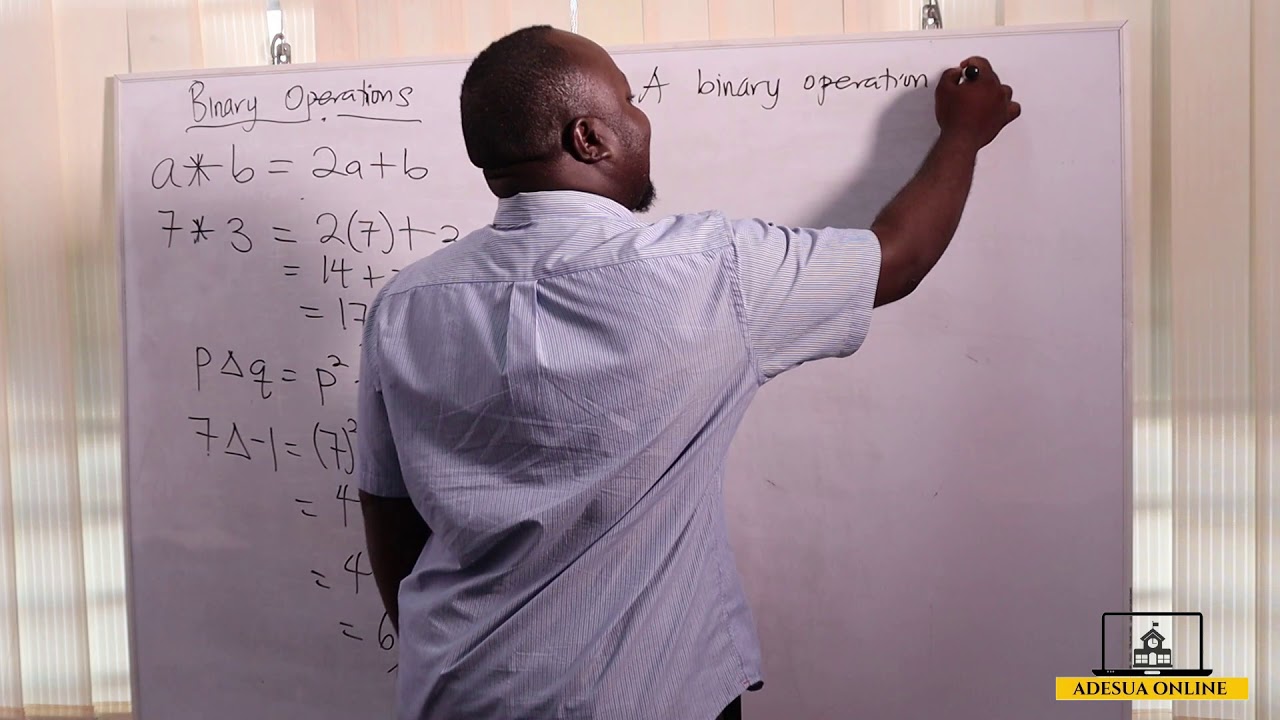 Binary Operations
a * b = 2a + b
7 * 3 = 2(7) +
= 14 +
= 17
p Δ q = p²
7 Δ -1 = (7)²
= 4
= 4
= 6
A binary operation
ADESUA ONLINE